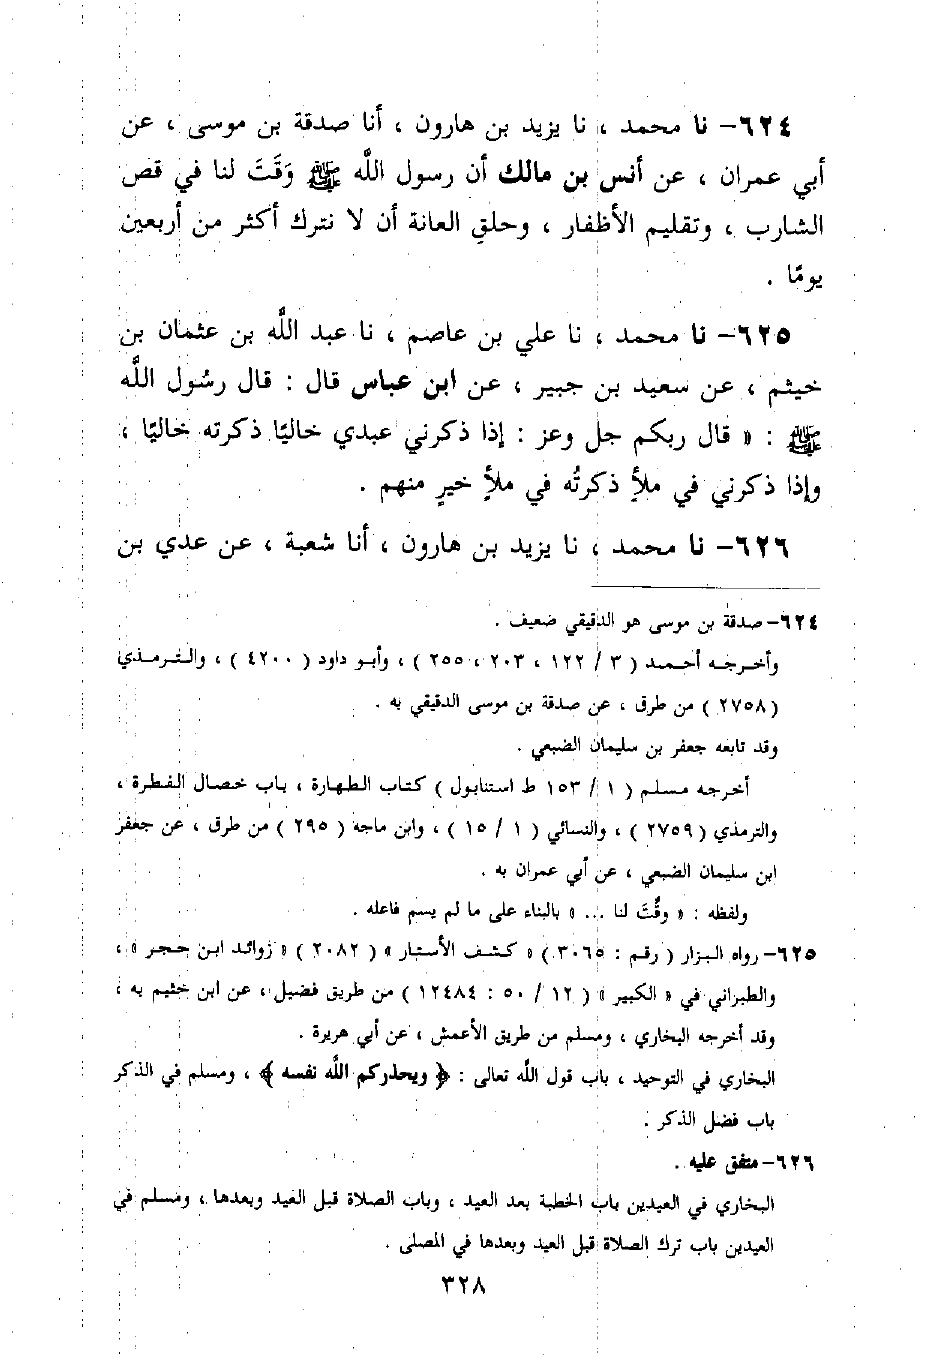 ٦٢٤- نا محمد ، نا يزيد بن هارون ، أنا صدقة بن موسى ، عن
أبي عمران ، عن أنس بن مالك أن رسول اللَّه ﷺ وَقَّتَ لنا في قص
الشارب ، وتقليم الأظفار ، وحلقِ العانة أن لا نترك أكثر من أربعين
يومًا .
٦٢٥- نا محمد ، نا علي بن عاصم ، نا عبد اللَّه بن عثمان بن
خيثم ، عن سعيد بن جبير ، عن ابن عباس قال : قال رسُول اللَّه
ﷺ : « قال ربكم جل وعز : إذا ذكرني عبدي خاليًا ذكرته خاليًا ،
وإذا ذكرني في ملأٍ ذكرتُه في ملأٍ خيرٍ منهم .
٦٢٦- نا محمد ، نا يزيد بن هارون ، أنا شعبة ، عن عدي بن
٦٢٤- صدقة بن موسى هو الدقيقي ضعيف .
وأخرجه أحمد ( ٣ / ١٢٢ ، ٢٠٣ ، ٢٥٥ ) ، وأبو داود ( ٤٢٠٠ ) ، والترمذي
( ٢٧٥٨ ) من طرق ، عن صدقة بن موسى الدقيقي به .
وقد تابعه جعفر بن سليمان الضبعي .
أخرجه مسلم ( ١ / ١٥٣ ط استنابول ) كتاب الطهارة ، باب خصال الفطرة ،
والترمذي ( ٢٧٥٩ ) ، والنسائي ( ١ / ١٥ ) ، وابن ماجه ( ٢٩٥ ) من طرق ، عن جعفر
ابن سليمان الضبعي ، عن أبي عمران به .
ولفظه : « وقِّتَ لنا ... » بالبناء على ما لم يسم فاعله .
٦٢٥- رواه البزار ( رقم : ٣٠٦٥ ) « كشف الأستار » ( ٢٠٨٢ ) « زوائد ابن حجر » ،
والطبراني في « الكبير » ( ١٢ / ٥٠ : ١٢٤٨٤ ) من طريق فضيل ، عن ابن خثيم به ،
وقد أخرجه البخاري ، ومسلم من طريق الأعمش ، عن أبي هريرة .
البخاري في التوحيد ، باب قول اللَّه تعالى : ﴿ ويحذركم اللَّه نفسه ﴾ ، ومسلم في الذكر
باب فضل الذكر .
٦٢٦- متفق عليه .
البخاري في العيدين باب الخطبة بعد العيد ، وباب الصلاة قبل العيد وبعدها ، ومسلم في
العيدين باب ترك الصلاة قبل العيد وبعدها في المصلى .
٣٢٨